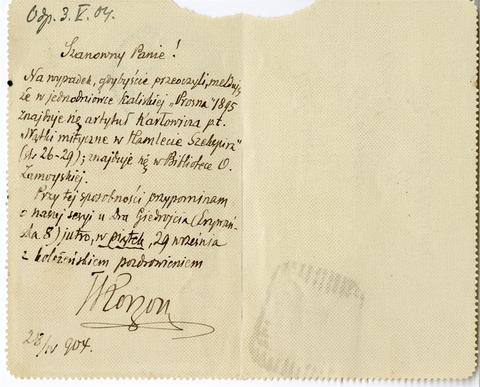 Odp. 3. V. 04.
Szanowny Panie!
Na wypadek, gdybyście przeoczyli, melduję,
że w jednodniówce kaliskiej „Prosna" 1895
znajduje się artykuł Karłowicza p.t.
„Wątki mityczne w Hamlecie Szekspira"
(str. 26-29); znajduje się w Bibliotece O.
Zamoyskiej.
Przy tej sposobności przypominam
o naszej sesyi u Dra Giedroycia
8) jutro, w piątek, 29 września
z koleżeńskiem pozdrowieniem
TKorzon
28/IV 904.